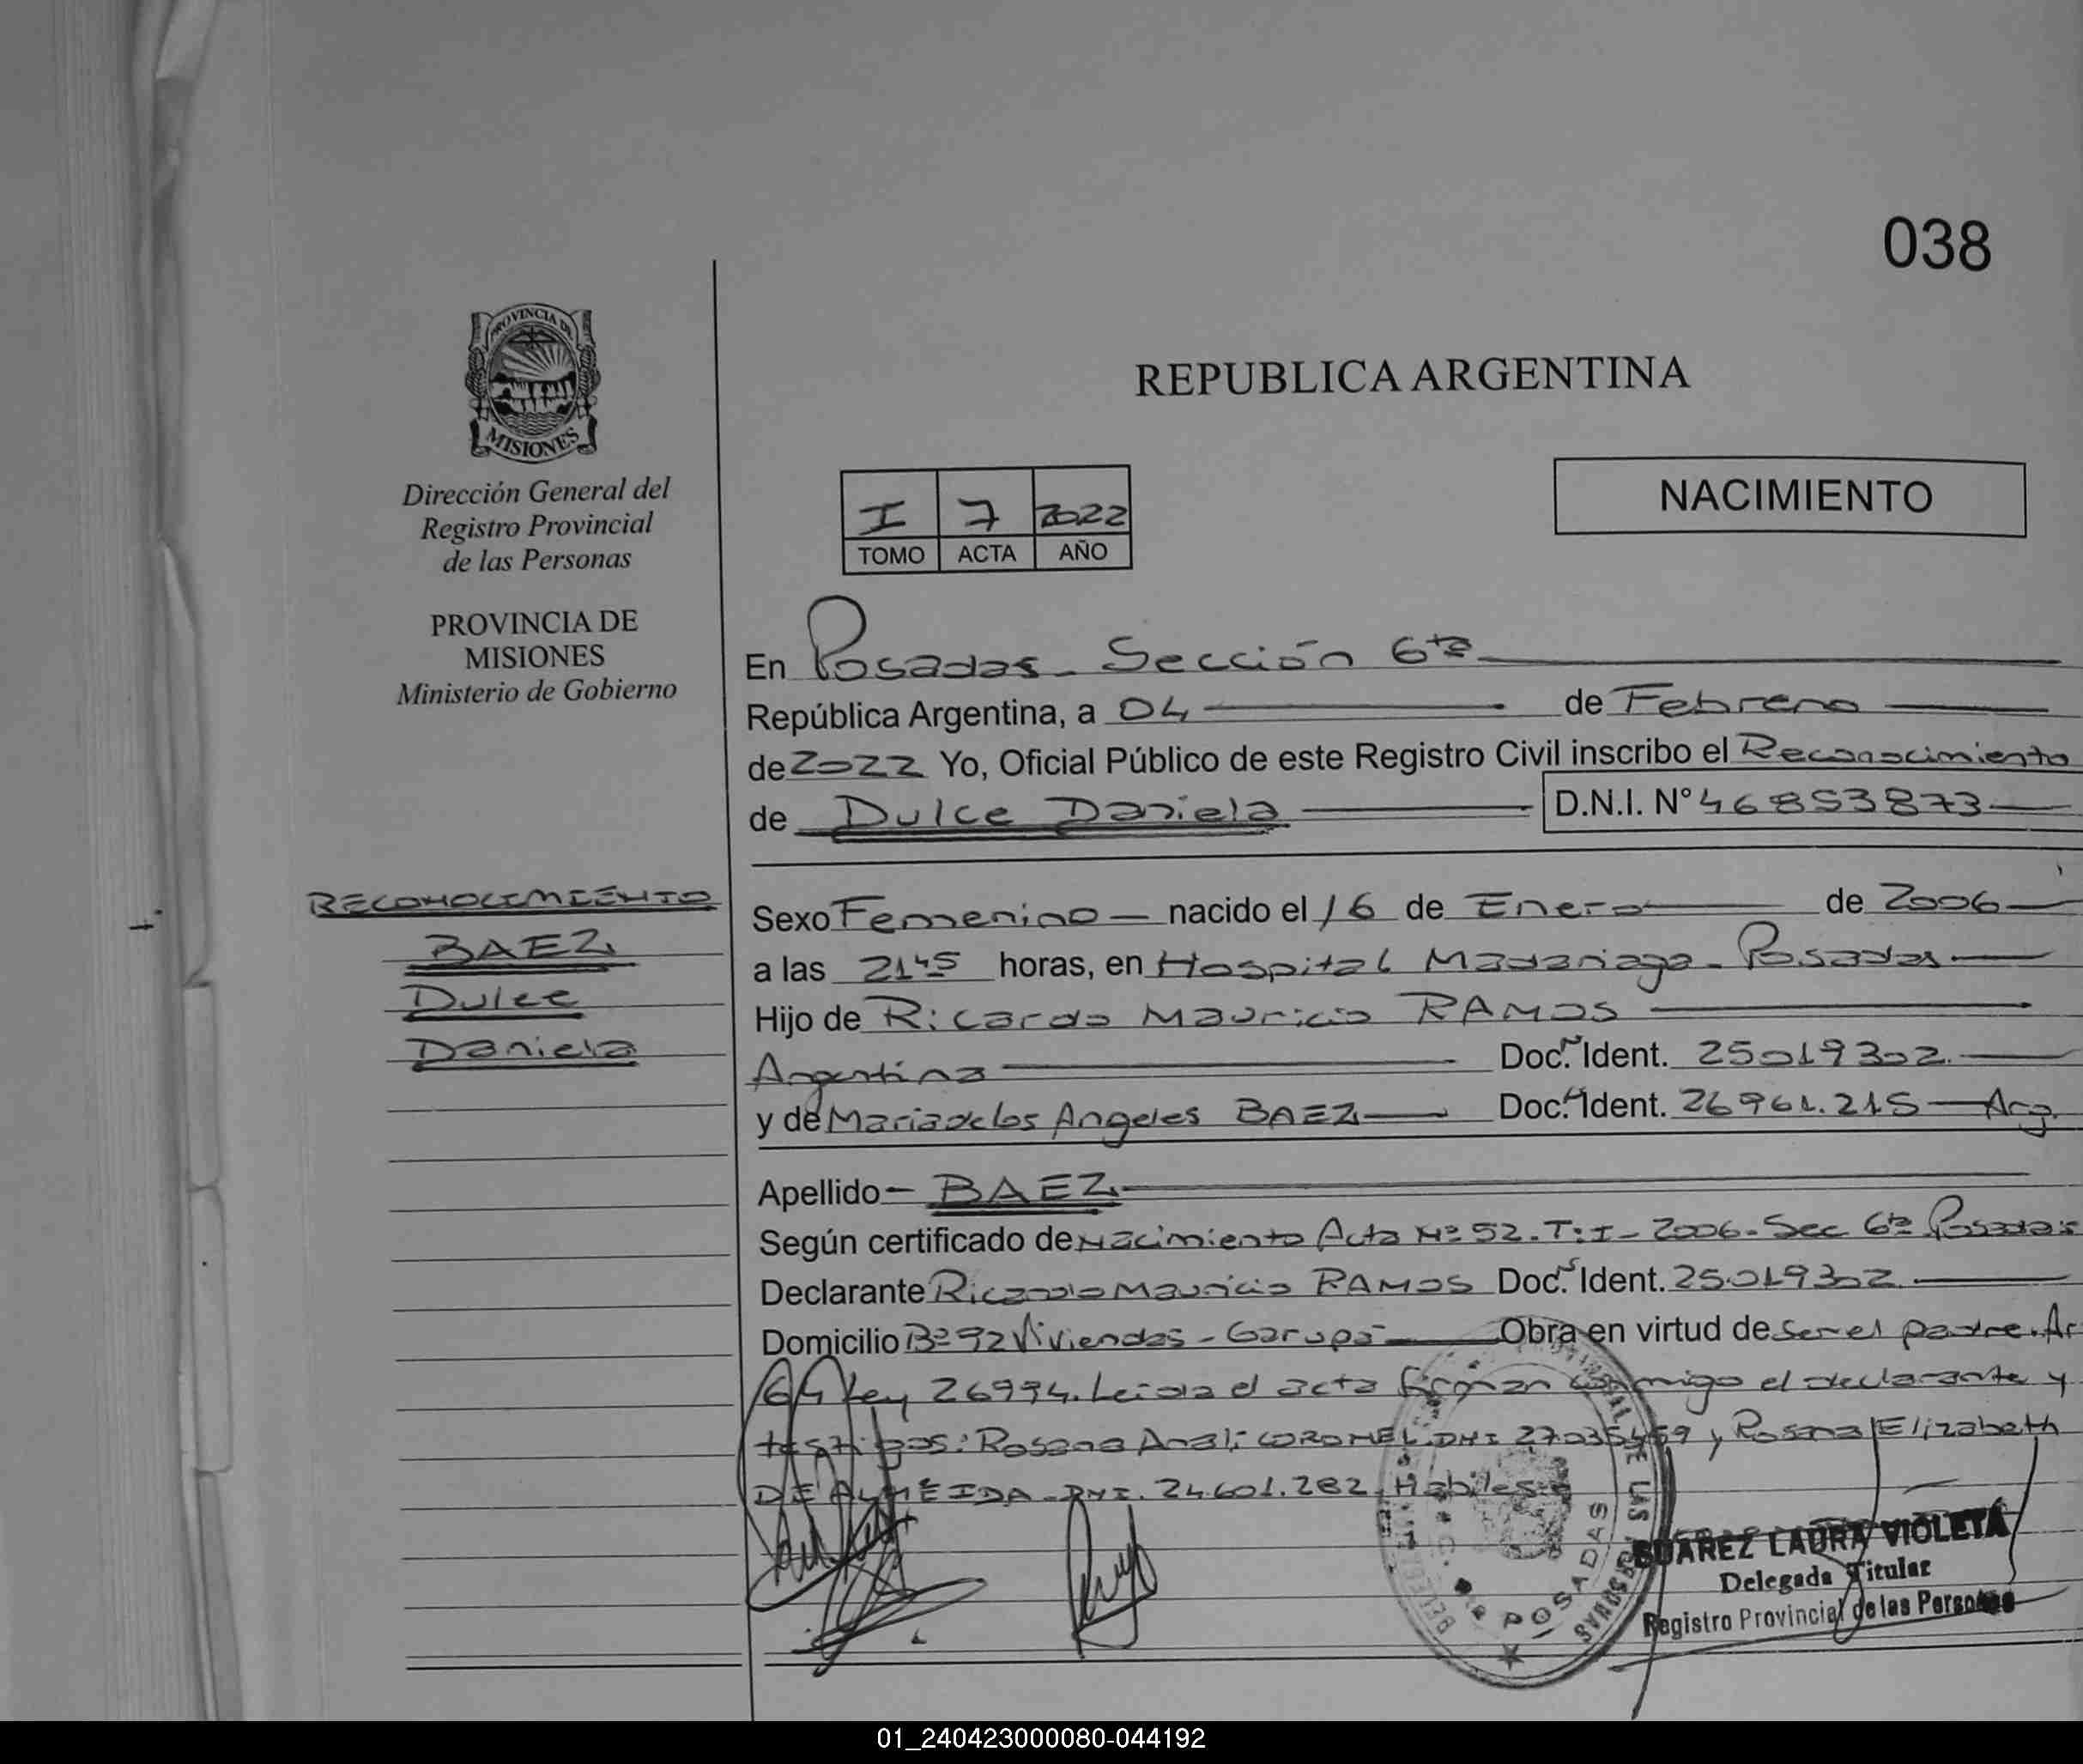 038
PROVINCIA DE
MISIONES
Dirección General del
Registro Provincial
de las Personas
PROVINCIA DE
MISIONES
Ministerio de Gobierno
RECONOCIMIENTO
BAEZ
Dulce
Daniela
REPUBLICA ARGENTINA
NACIMIENTO
I 7 2022
TOMO ACTA AÑO
En Posadas - Sección 6ta
República Argentina, a 04 de Febrero
de 2022 Yo, Oficial Público de este Registro Civil inscribo el Reconocimiento
de Dulce Daniela D.N.I. N° 46853873
Sexo Femenino nacido el 16 de Enero de 2006
a las 21 45 horas, en Hospital Madariaga - Posadas
Hijo de Ricardo Mauricio RAMOS
Argentina Doc. Ident. 25019302
y de Maria de los Angeles BAEZ Doc. Ident. 26961.215 - Arg.
Apellido - BAEZ
Según certificado de Nacimiento Acta Nº 52. T: I - 2006 - Sec 6ta Posadas
Declarante Ricardo Mauricio RAMOS Doc. Ident. 25019302
Domicilio Bº 92 Viviendas - Garupá Obra en virtud de ser el padre. Ar
64 Ley 26994. Leida el acta firman conmigo el declarante y
testigos: Rosana Anali CORONEL DNI y Rosana Elizabeth
DE ALMEIDA DNI. 24.601.282 Habiles
POSADAS
SUAREZ LAURA VIOLETA
Delegada Titular
Registro Provincial de las Personas
01_240423000080-044192